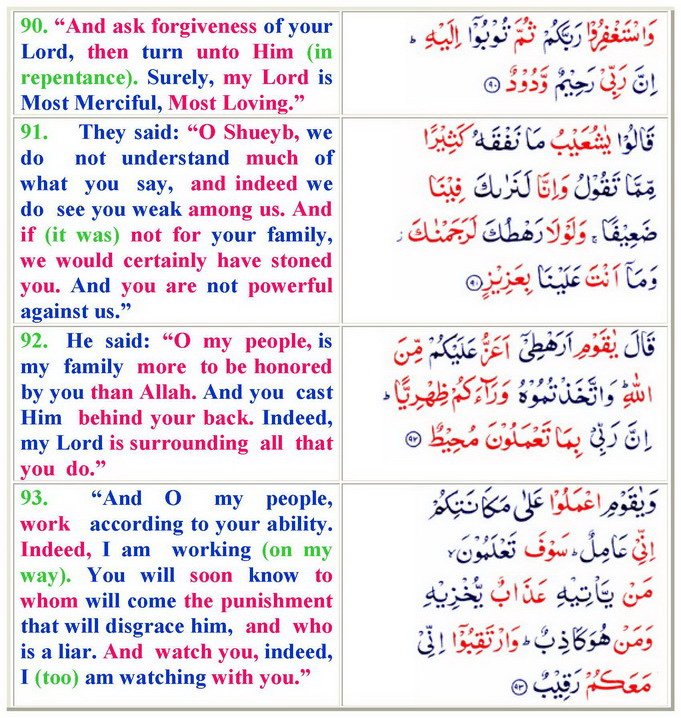 90. “And ask forgiveness of your
Lord, then turn unto Him (in
repentance). Surely, my Lord is
Most Merciful, Most Loving.”
وَاسْتَغْفِرُوْا رَبَّكُمْ ثُمَّ تُوْبُوْٓا اِلَيْهِ ؕ
اِنَّ رَبِّيْ رَحِيْمٌ وَّدُوْدٌ ۹۰
91. They said: “O Shueyb, we
do not understand much of
what you say, and indeed we
do see you weak among us. And
if (it was) not for your family,
we would certainly have stoned
you. And you are not powerful
against us.”
قَالُوْا يٰشُعَيْبُ مَا نَفْقَهُ كَثِيْرًا
مِّمَّا تَقُوْلُ وَاِنَّا لَنَرٰىكَ فِيْنَا
ضَعِيْفًا ۚ وَلَوْلَا رَهْطُكَ لَرَجَمْنٰكَ ز
وَمَآ اَنْتَ عَلَيْنَا بِعَزِيْزٍ
92. He said: “O my people, is
my family more to be honored
by you than Allah. And you cast
Him behind your back. Indeed,
my Lord is surrounding all that
you do.”
قَالَ يٰقَوْمِ اَرَهْطِيْٓ اَعَزُّ عَلَيْكُمْ مِّنَ
اللّٰهِ ؕ وَاتَّخَذْتُمُوْهُ وَرَآءَكُمْ ظِهْرِيًّا ؕ
اِنَّ رَبِّيْ بِمَا تَعْمَلُوْنَ مُحِيْطٌ ۹۲
93. “And O my people,
work according to your ability.
Indeed, I am working (on my
way). You will soon know to
whom will come the punishment
that will disgrace him, and who
is a liar. And watch you, indeed,
I (too) am watching with you.”
وَيٰقَوْمِ اعْمَلُوْا عَلٰى مَكَانَتِكُمْ
اِنِّيْ عَامِلٌ ؕ سَوْفَ تَعْلَمُوْنَ ۙ
مَنْ يَّاْتِيْهِ عَذَابٌ يُّخْزِيْهِ
وَمَنْ هُوَ كَاذِبٌ ؕ وَارْتَقِبُوْٓا اِنِّيْ
مَعَكُمْ رَقِيْبٌ ۹۳